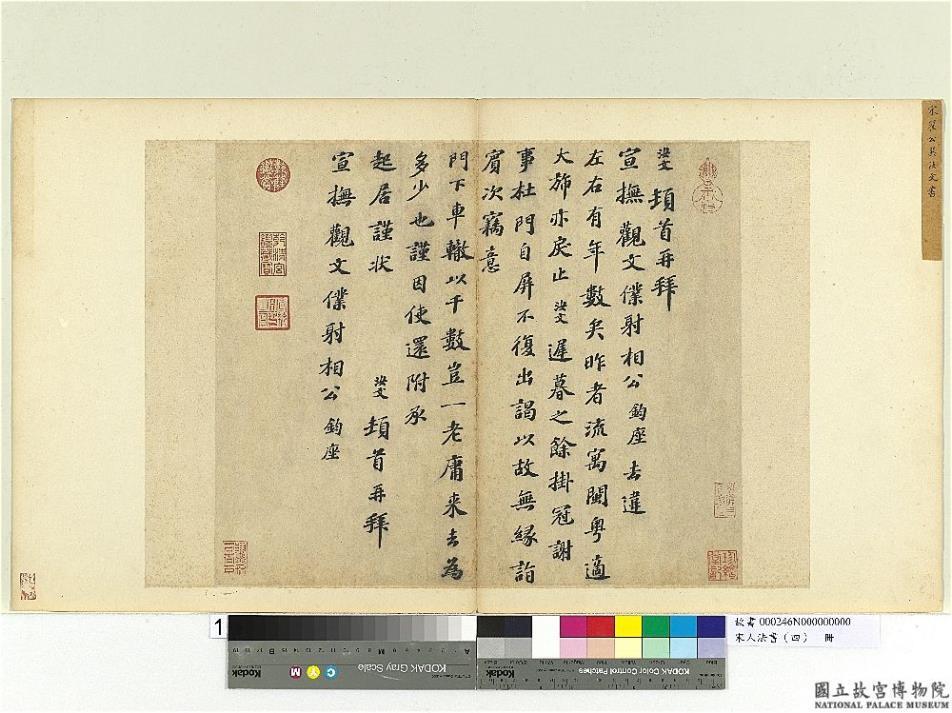 宋翟公巽法文書
汝文頓首再拜
宣撫觀文僕射相公鈞座去違
左右有年數矣昨者流寓閩粤適
大旆亦戾止汝文遲暮之餘掛冠謝
事杜門自屏不復出謁以故無緣詣
賓次竊意
門下車轍以千數豈一老庸來去為
多少也謹因使還附承
起居謹狀
汝文頓首再拜
宣撫觀文僕射相公鈞座
1
Kodak
KODAK Gray Scale
A
M
B
C
Y
M
Kodak
KODAK Color Control Patches
故書 000246N000000000
宋人法書（四） 冊
國立故宮博物院
NATIONAL PALACE MUSEUM